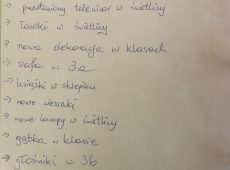 → przestawiony telewizor w świetlicy
→ ławki w świetlicy
→ nowa dekoracja w klasach
→ szafa w 3a
→ książki w sklepiku
→ nowe wieszaki
→ nowe lampy w świetlicy
→ gąbka w klasie
→ głośniki w 3b